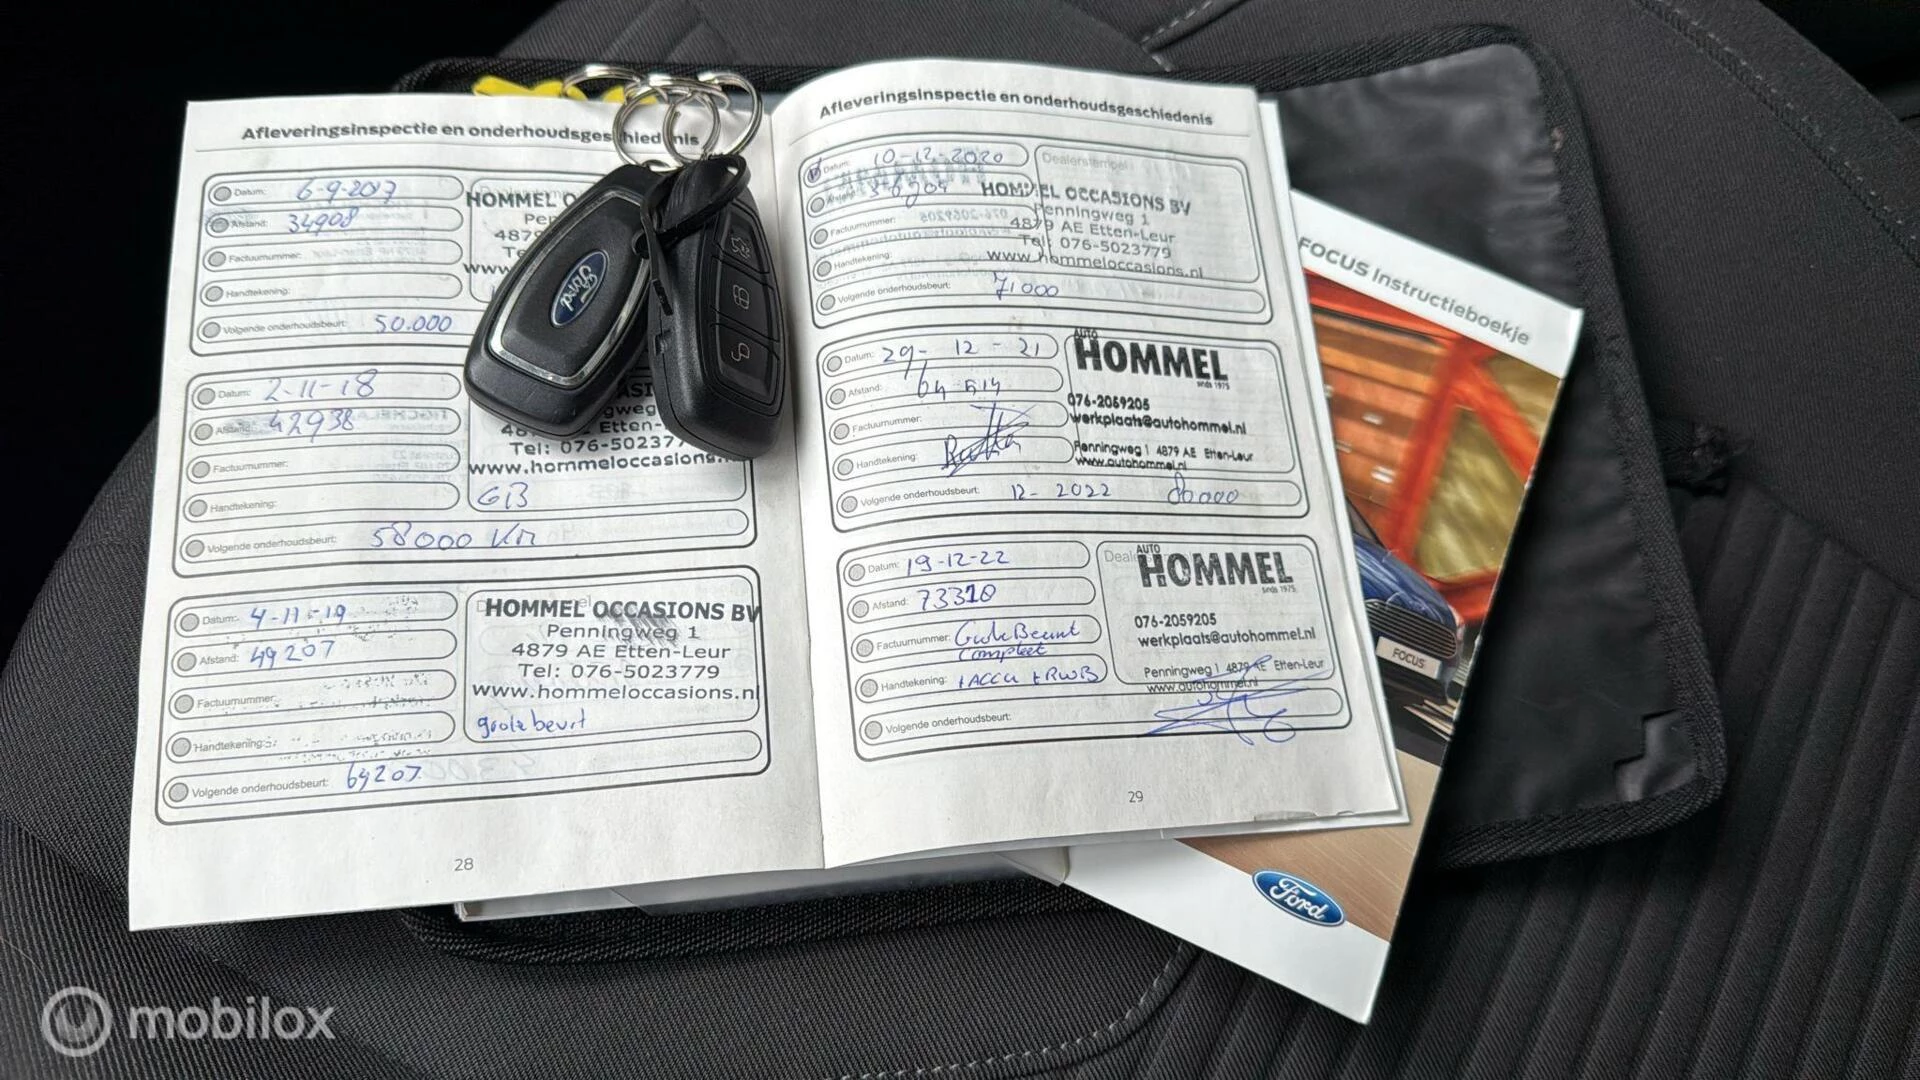 Afleveringsinspectie en onderhoudsgeschiedenis
Datum: 6-9-2017
Afstand: 34908
Factuurnummer:
Handtekening:
Volgende onderhoudsbeurt: 50.000
HOMMEL O
Pen
487
Te
www
Datum: 2-11-18
Afstand: 42938
Factuurnummer:
Handtekening:
Volgende onderhoudsbeurt: 58000 KM
Etten-
Tel: 076-50237
www.hommeloccasions.n
GB
Datum: 4-11-19
Afstand: 49207
Factuurnummer:
Handtekening:
Volgende onderhoudsbeurt: 69207
HOMMEL OCCASIONS BV
Penningweg 1
4879 AE Etten-Leur
Tel: 076-5023779
www.hommeloccasions.nl
grote beurt
28
Afleveringsinspectie en onderhoudsgeschiedenis
Datum: 10-12-2020
Afstand:
Factuurnummer:
Handtekening:
Volgende onderhoudsbeurt: 71000
Dealerstempel
HOMMEL OCCASIONS BV
Penningweg 1
4879 AE Etten-Leur
Tel: 076-5023779
www.hommeloccasions.nl
Datum: 29-12-21
Afstand: 64514
Factuurnummer:
Handtekening:
Volgende onderhoudsbeurt: 12-2022 80000
AUTO
HOMMEL
sinds 1975
076-2059205
werkplaats@autohommel.nl
Penningweg 1 4879 AE Etten-Leur
www.autohommel.nl
Datum: 19-12-22
Afstand: 73310
Factuurnummer: Grote Beurt
compleet
Handtekening: + ACCU + RWB
Volgende onderhoudsbeurt:
AUTO
HOMMEL
sinds 1975
076-2059205
werkplaats@autohommel.nl
Penningweg 1 4879 AE Etten-Leur
www.autohommel.nl
29
Ford
FOCUS Instructieboekje
FOCUS
Ford
mobilox